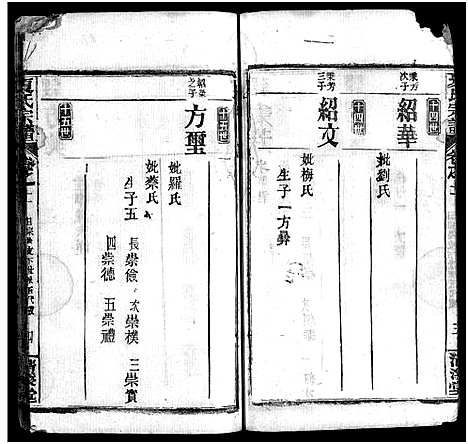 十四世
秉方次子
紹華
妣劉氏
十四世
秉芳三子
紹文
妣梅氏
生子一方彝
十五世
紹榮之子
方璽
妣羅氏
妣蔡氏
生子五
長崇儉
次崇樸
三崇實
四崇德
五崇禮
氏宗譜
卷之
四